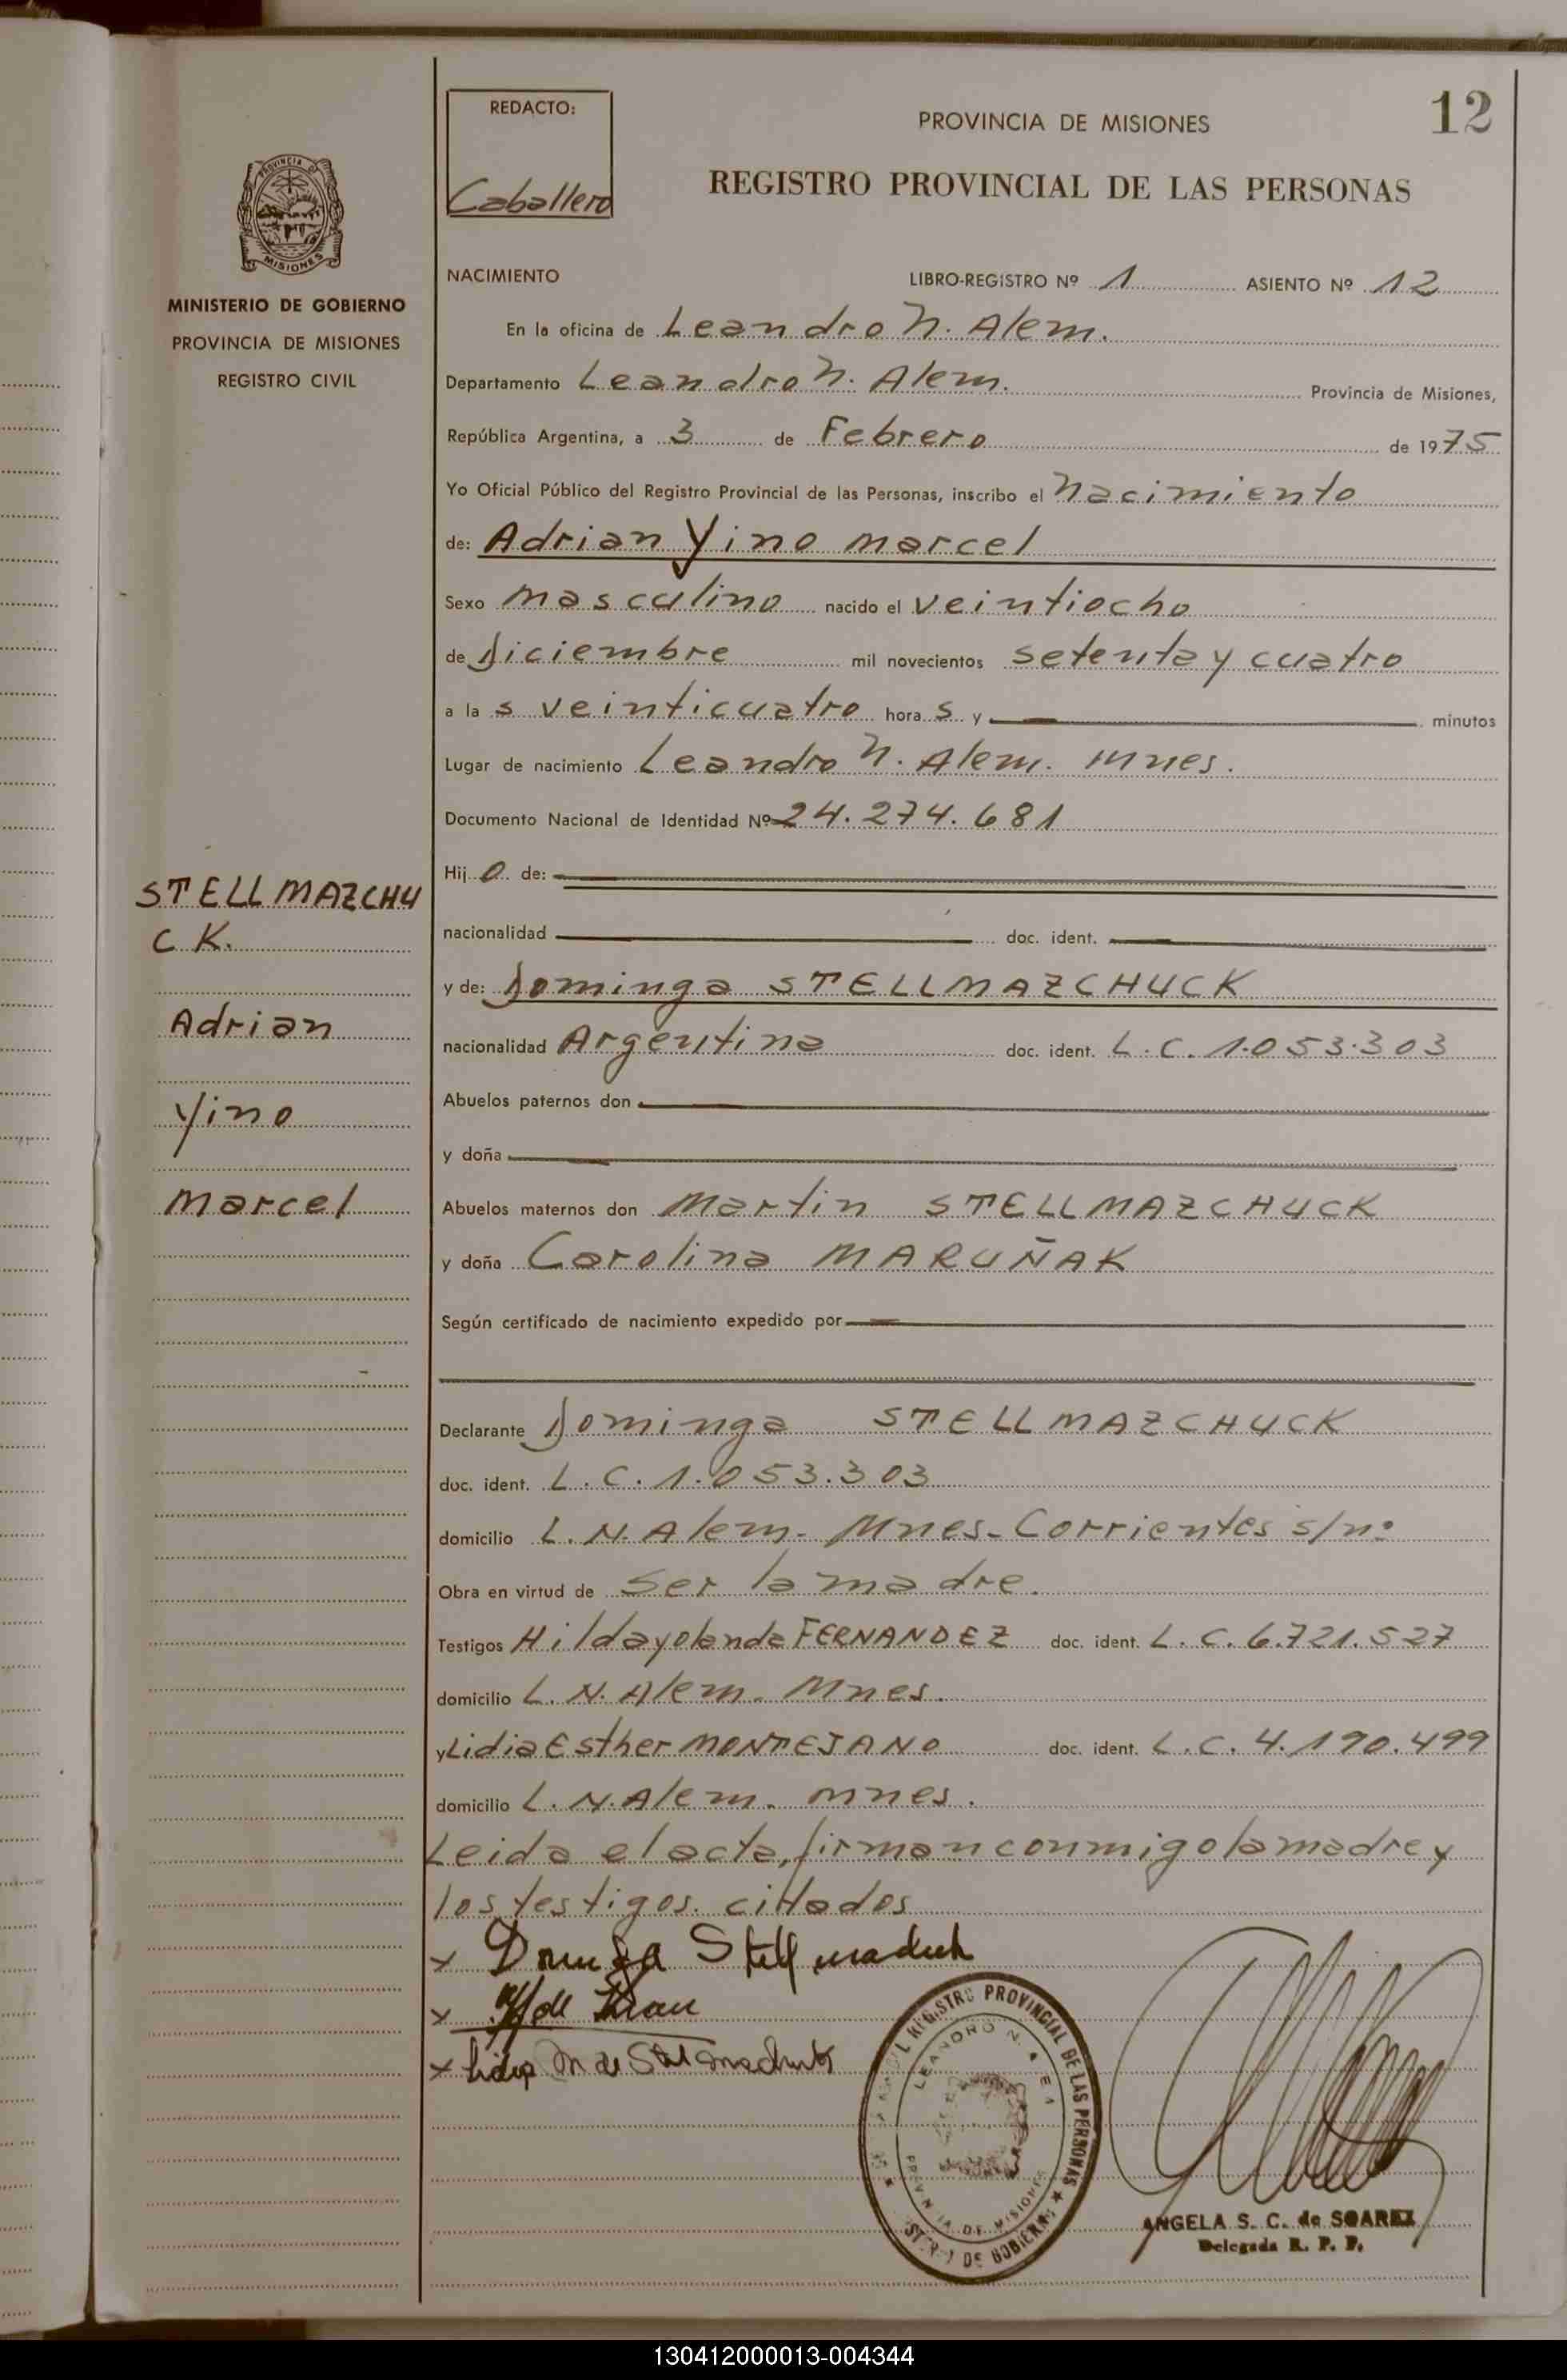 REDACTO:
Caballero
PROVINCIA DE MISIONES
12
REGISTRO PROVINCIAL DE LAS PERSONAS
PROVINCIA D
MISIONES
MINISTERIO DE GOBIERNO
PROVINCIA DE MISIONES
REGISTRO CIVIL
STELLMAZCHU
CK.
Adrian
Yino
Marcel
NACIMIENTO LIBRO-REGISTRO Nº 1 ASIENTO Nº 12
En la oficina de Leandro N. Alem.
Departamento Leandro N. Alem. Provincia de Misiones,
República Argentina, a 3 de Febrero de 1975
Yo Oficial Público del Registro Provincial de las Personas, inscribo el Nacimiento
de: Adrian Yino Marcel
Sexo Masculino nacido el veintiocho
de Diciembre mil novecientos setenta y cuatro
a la s veinticuatro hora s y minutos
Lugar de nacimiento Leandro N. Alem. Mnes.
Documento Nacional de Identidad Nº 24.274.681
Hij o de:
nacionalidad doc. ident.
y de: Dominga STELLMAZCHUCK
nacionalidad Argentina doc. ident. L.C. 1.053.303
Abuelos paternos don
y doña
Abuelos maternos don Martin STELLMAZCHUCK
y doña Carolina MARUÑAK
Según certificado de nacimiento expedido por
Declarante Dominga STELLMAZCHUCK
doc. ident. L.C. 1.053.303
domicilio L.N.Alem. Mnes-Corrientes s/nº
Obra en virtud de Ser la madre.
Testigos Hilda yolanda FERNANDEZ doc. ident. L.C. 6.721.527
domicilio L.N.Alem. Mnes.
y Lidia Esther MONTEJANO doc. ident. L.C. 4.190.499
domicilio L.N.Alem. Mnes.
Leida el acta, firman conmigo la madre y
los testigos. cittados
x
x
x
REGISTRO PROVINCIAL DE LAS PERSONAS
LEANDRO N. ALE
DE MISIONES
DE GOBIERN
ANGELA S. C. de SOAREZ
Delegada R. P. P.
130412000013-004344